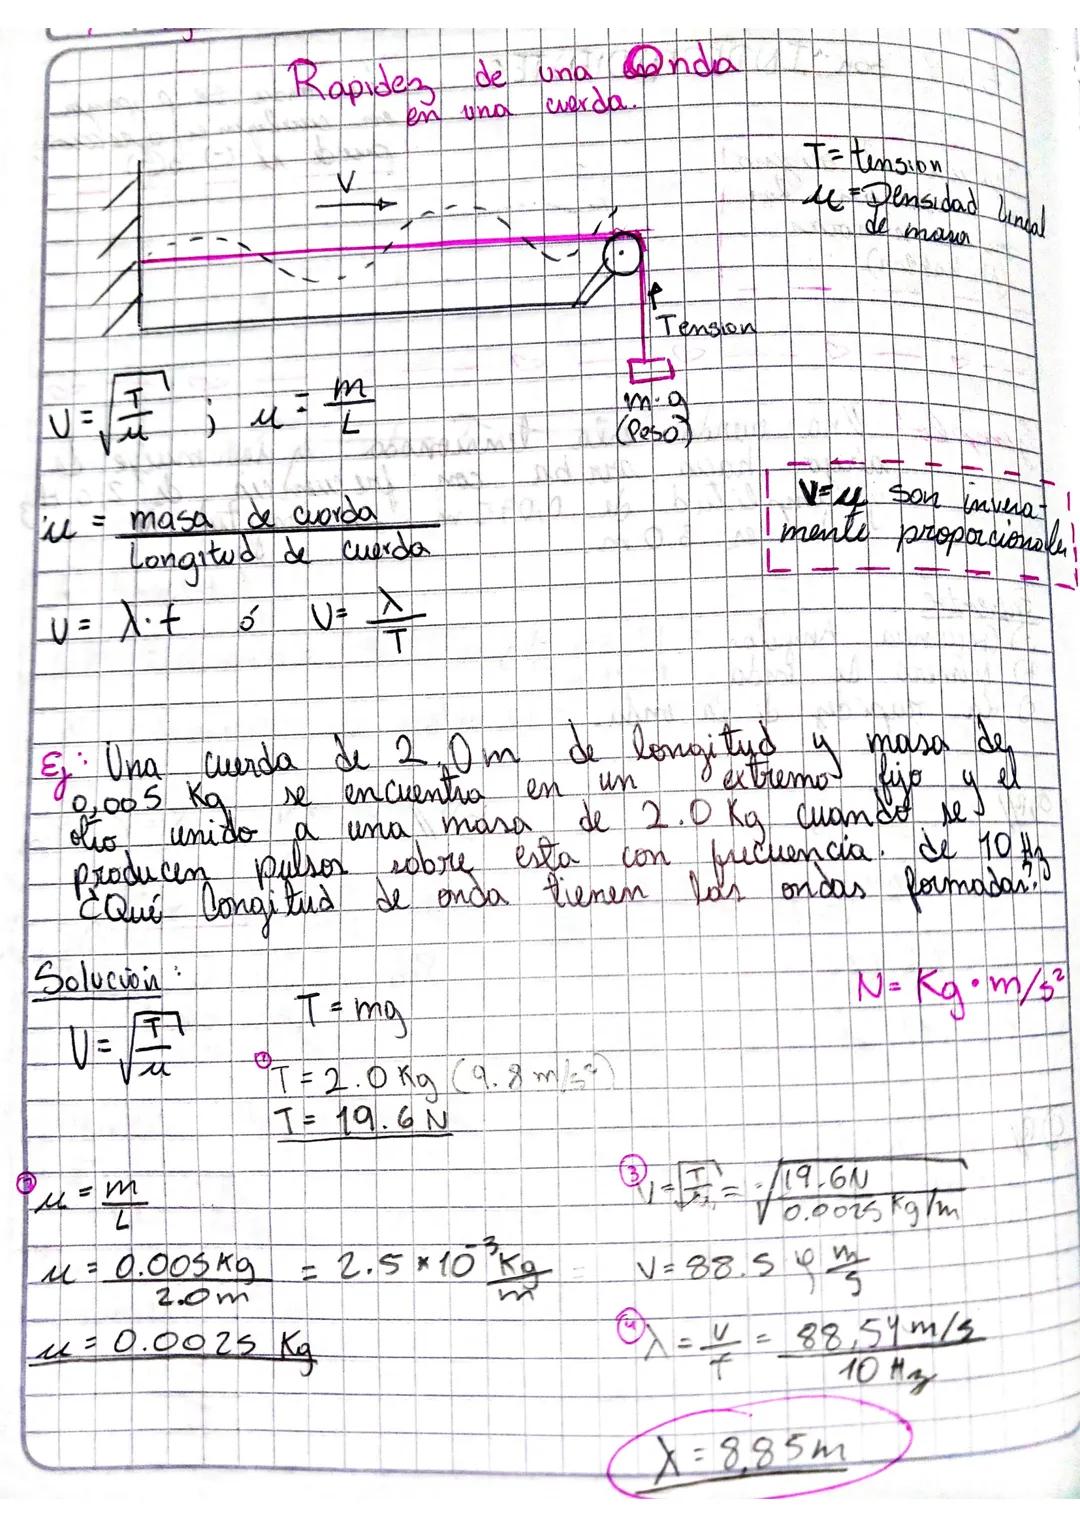 Rapidez de una Onda
en una cuerda.
T= tension
μ= Densidad lineal
de masa
V
Tension
m·g
(Peso)
V=√T/μ ; μ= m/L
V=μ son inversa-
mente proporcionales
μ = masa de cuerda / Longitud de cuerda
V= λ·f ó V= λ/T
Ej: Una cuerda de 2.0m de longitud y masa de
0,005 Kg se encuentra en un extremo fijo y el
otro unido a una masa de 2.0 Kg cuando se
producen pulsos sobre esta con frecuencia. de 10 Hz
¿Qué Longitud de onda tienen las ondas formadas?
Solución:
N= Kg·m/s²
V=√T/μ
T=mg
① T= 2.0 Kg (9.8 m/s²)
T= 19.6 N
② μ= m/L
μ= 0.005Kg / 2.0m = 2.5 × 10⁻³ Kg/m
μ= 0.0025 Kg
③ V=√T/μ = √19.6N / 0.0025 Kg/m
V= 88.54 m/s
④ λ= V/f = 88,54 m/s / 10 Hz
λ= 8,85m